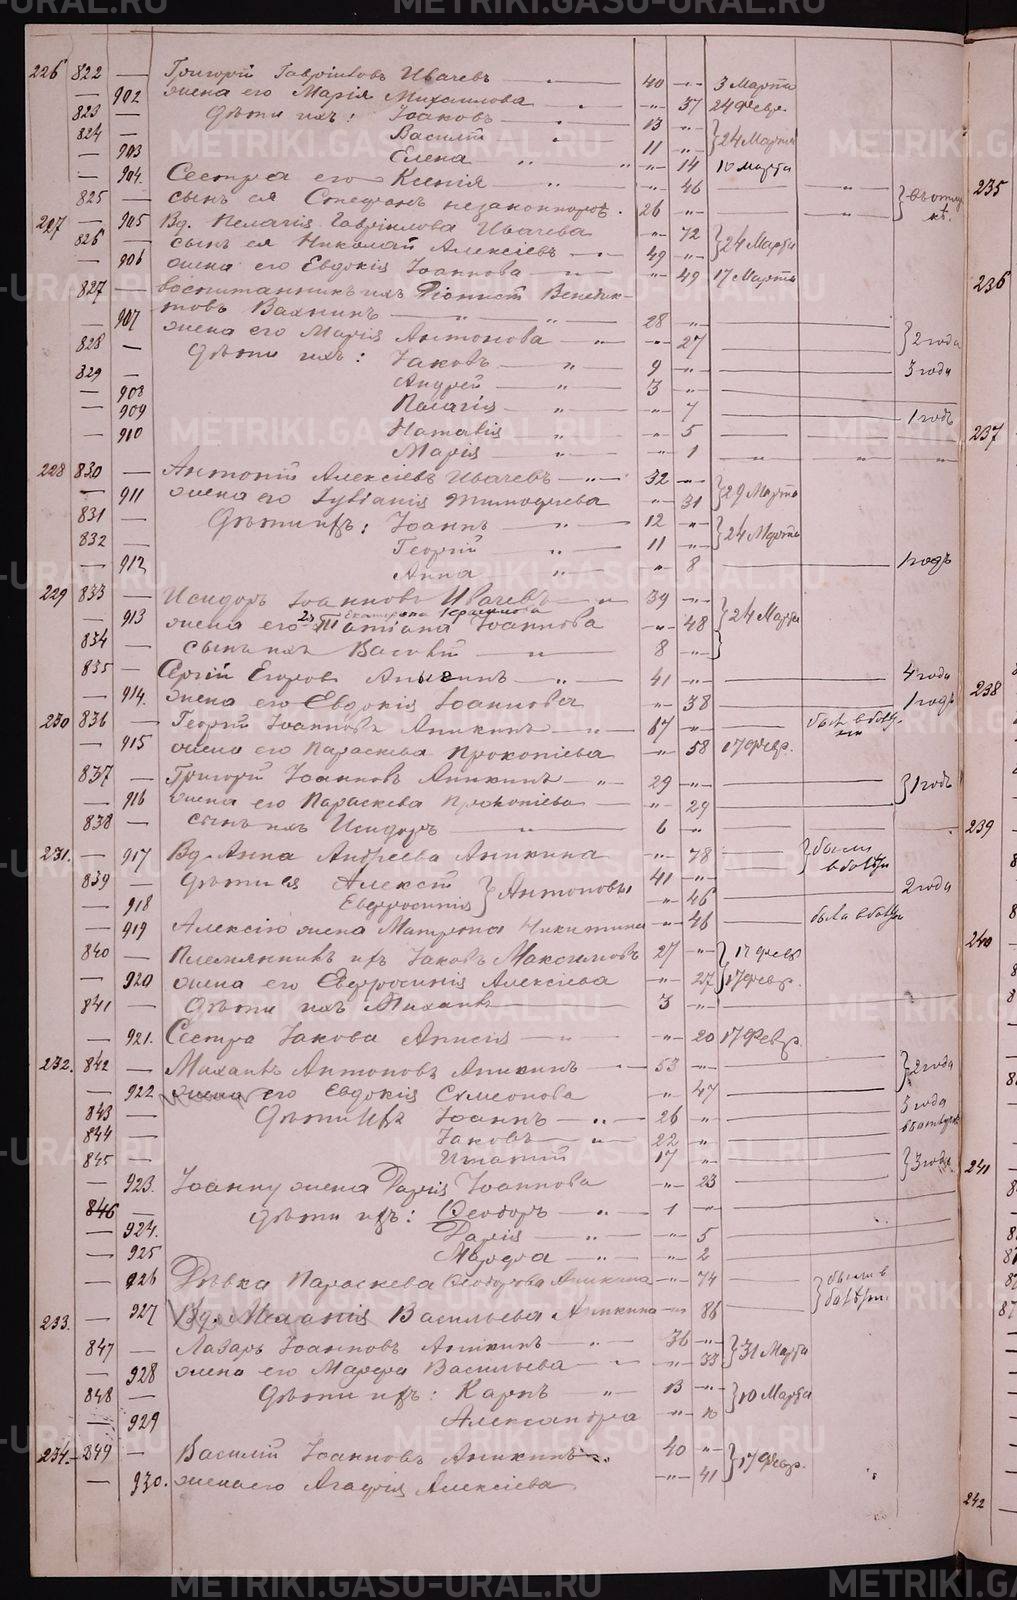 226 822 — Григорій Гавріиловъ Ивачевъ — 40 -"- 3 Марта
— 902 жена его Марія Михаилова — -"- 37 24 Февр.
823 — Дѣти ихъ: Іаковъ — 13 -"-
824 — Василій 11 -"- } 24 Марта
— 903 Елена " " -"- 14 10 марта
— 904 Сестра его Ксенія — " -"- 46 — " —
825 — сынъ ея Стефанъ незаконнорож. 26 -"- — " —
227 — 905 Вд. Пелагія Гавріилова Ивачева -"- 72
826 — сынъ ея Николай Алексіевъ — 49 -"- } 24 Марта
— 906 жена его Евдокія Іоаннова — " -"- 49 17 Марта
827 — воспитанникъ ихъ Діонисій Венедик-
товъ Вахнинъ — " 28 -"-
— 907 жена его Марія Антонова — " -"- 27 } 2 года
828 — Дѣти ихъ: Іаковъ — " 9 -"- 3 года
829 — Андрей — " 3 -"-
— 908 Пелагія — " -"- 7 1 годъ
— 909
— 910 Наталія " -"- 5
Марія — " -"- 1 — " — " "
228 830 — Антоній Алексіевъ Ивачевъ — " 32 -"-
— 911 жена его Іуліанія Тимофеева -"- 31 } 29 Марта
831 — Дѣти ихъ: Іоаннъ — " 12 -"-
832 — Георгій " 11 -"- } 24 Марта
— 912 Анна " -"- 8 1 годъ
229 833 — Исидоръ Іоанновъ Ивачевъ — " 39 -"-
— 913 жена его Татіана Іоаннова -"- 48 } 24 Марта
834 — сынъ ихъ Василій — " 8 -"-
835 — Сергій Егоровъ Аникинъ — " 41 -"- 4 года
— 914. Жена его Евдокія Іоаннова -"- 38 1 годъ
230 836 — Георгій Іоанновъ Аникинъ — " 67 -"-
— 915 жена его Параскева Прокопіева -"- 58 17 Февр.
837 — Григорій Іоанновъ Аникинъ — " 29 -"-
— 916 Жена его Параскева Прокопіева — -"- 29 } 1 годъ
838 — сынъ ихъ Исидоръ — " 6 -"-
231. — 917 Вд. Анна Андреева Аникина -"- 78
839 — Дѣти ея Алексій } Антоновы 41 -"- 2 года
— 918 Евфросинія -"- 46
— 919 Алексію жена Матрона Никитина -"- 46
840 — Племянникъ ихъ Іаковъ Максимовъ 27 -"- } 17 Февр
— 920 жена его Евфросинія Алексіева -"- 27 } 17 Февр.
841 — Дѣти ихъ Михаилъ 3 -"-
— 921. Сестра Іакова Анисія — " -"- 20 17 Февр.
232. 842 — Михаилъ Антоновъ Аникинъ — 53 -"-
— 922 жена его Евдокія Симеонова -"- 47 } 2 года
843 — Дѣти ихъ Іоаннъ — " 26 -"- 3 года
844 — Іаковъ — " 22 -"-
845 — Игнатій 17 -"- } 3 года
— 923. Іоанну жена Дарія Іоаннова -"- 23
846 — Дѣти ихъ: Ѳеодоръ — " 1 -"-
— 924. Дарія — " -"- 5
— 925 Марфа " -"- 2
— 926 Дѣвка Параскева Ѳеодорова Аникина -"- 74
233. — 927 Вд. Меланія Васильева Аникина -"- 86
847 — Лазарь Іоанновъ Аникинъ — " 36 -"-
— 928 жена его Марфа Васильева — " -"- 33 } 31 Марта
848 — Дѣти ихъ: Карпъ " 13 -"-
— 929 Александра -"- 10 } 10 Марта
234. 849 — Василій Іоанновъ Аникинъ 40 -"-
— 930. жена его Агафія Алексіева -"- 41 } 17 Февр.
235
236
237
238
239
240
241
242
METRIKI.GASO-URAL.RU